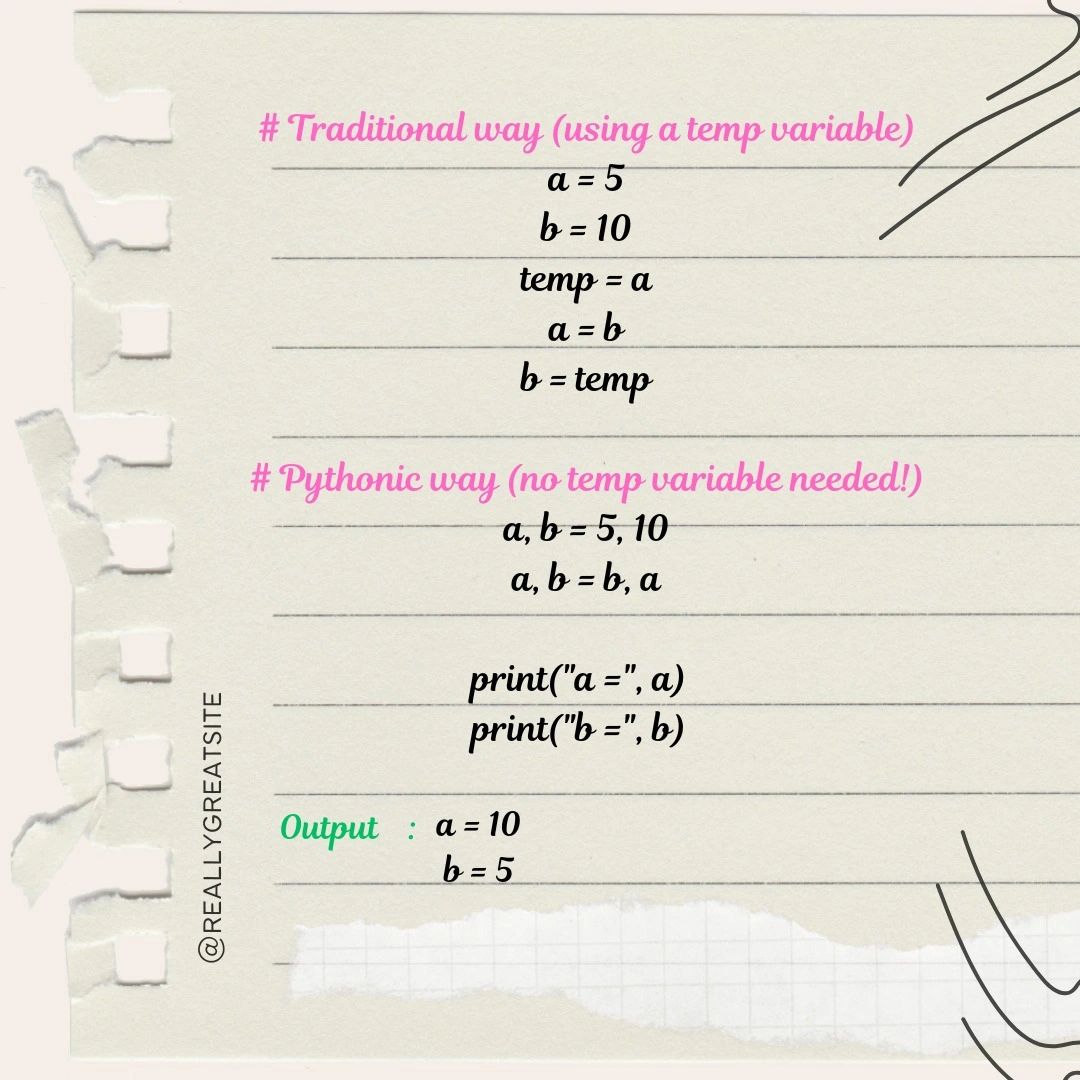 # Traditional way (using a temp variable)
a = 5
b = 10
temp = a
a = b
b = temp
# Pythonic way (no temp variable needed!)
a, b = 5, 10
a, b = b, a
print("a =", a)
print("b =", b)
Output : a = 10
b = 5
@REALLYGREATSITE